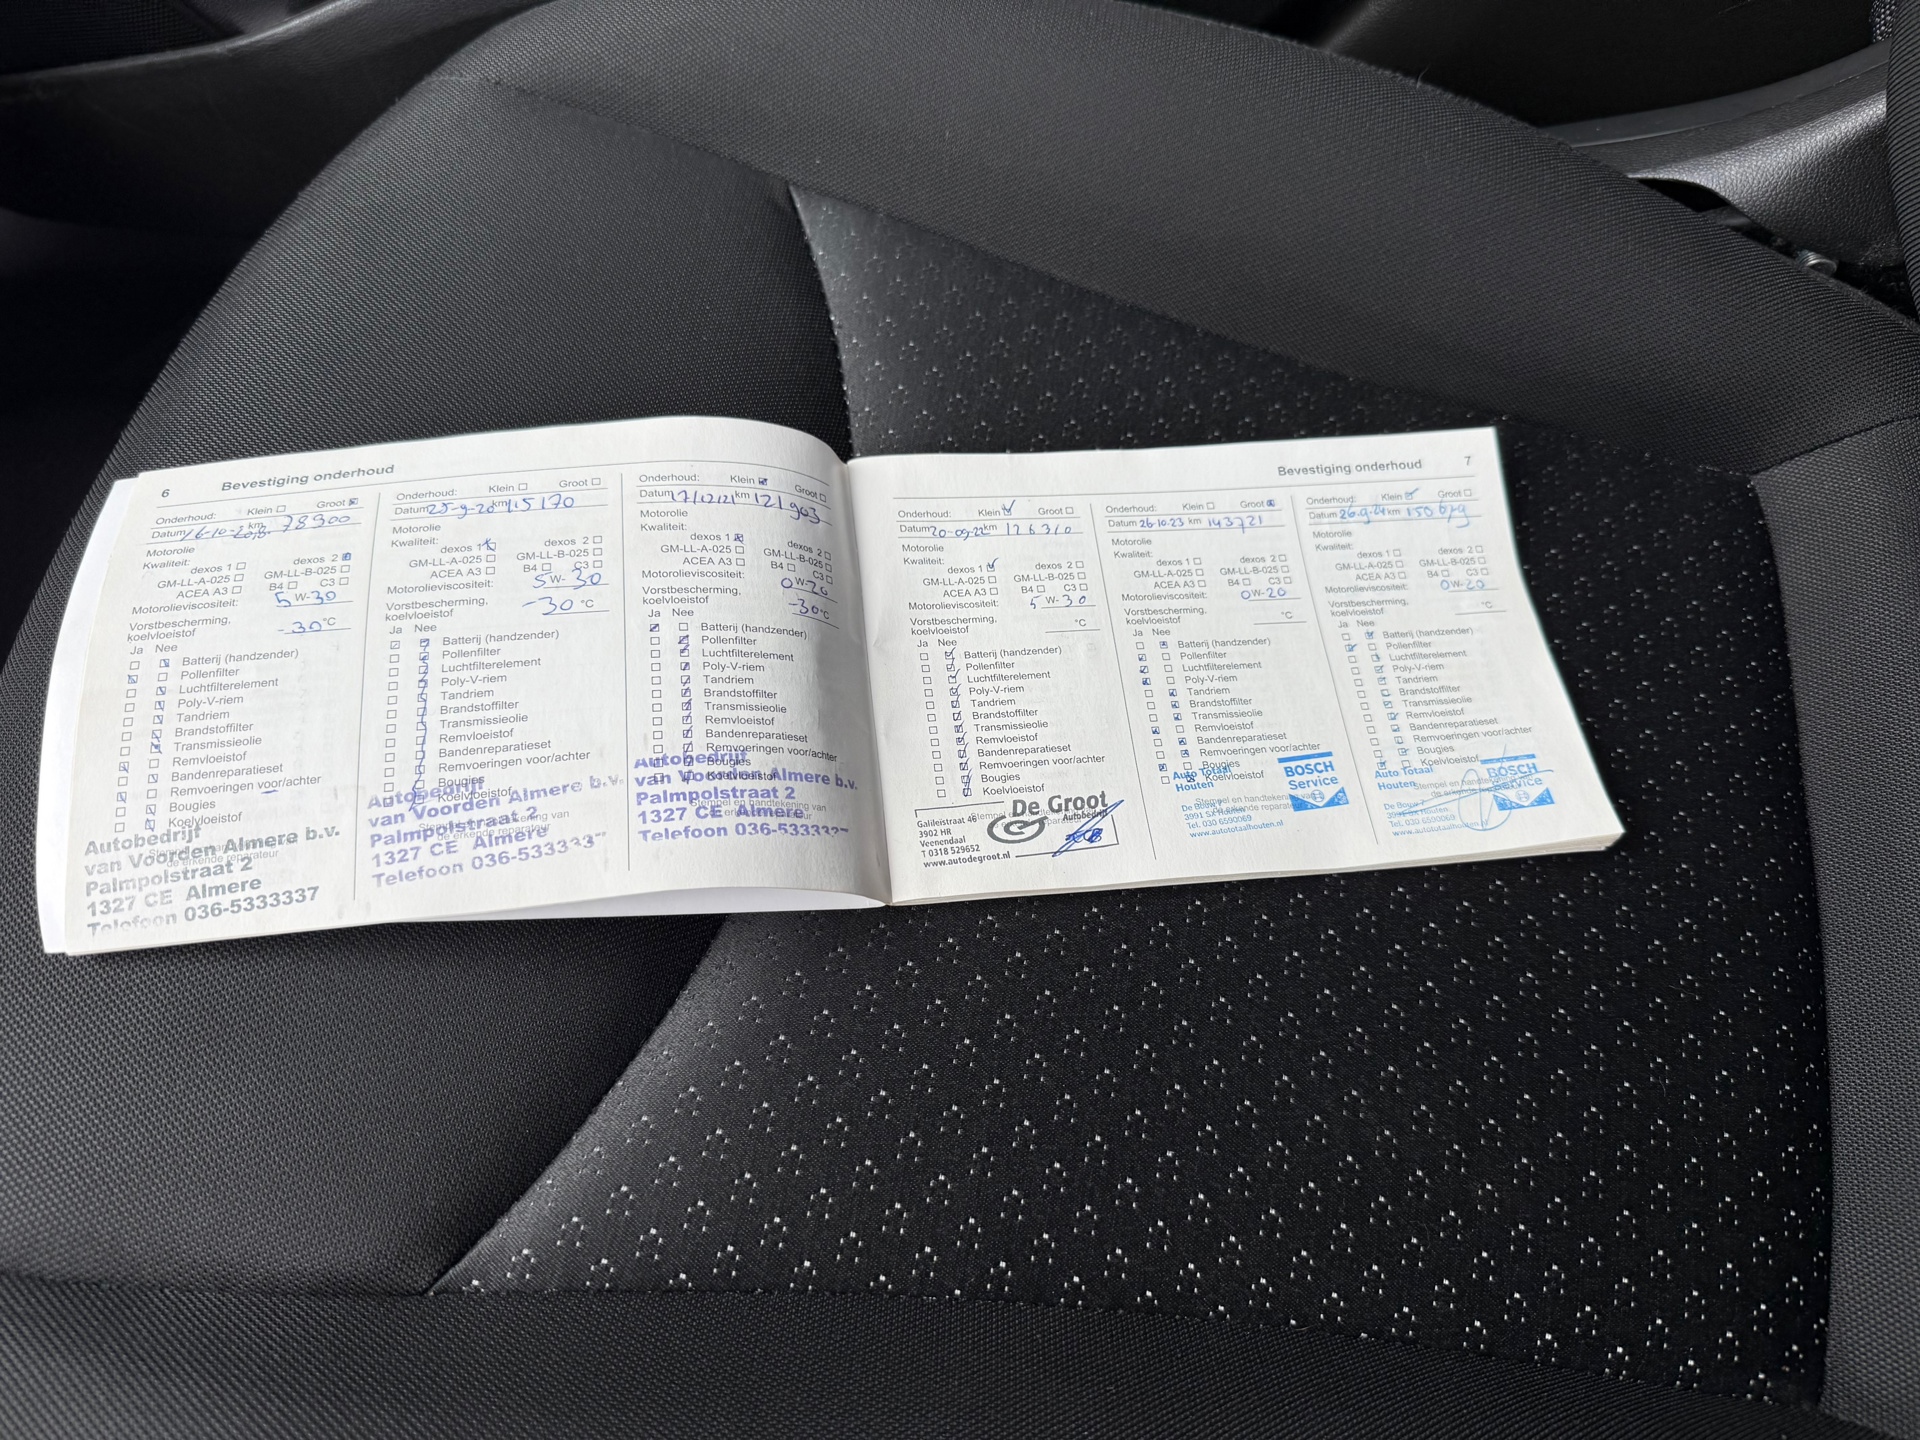 6 Bevestiging onderhoud
Onderhoud: Klein Groot
Datum 16-10-2018 km 78900
Motorolie
Kwaliteit:
dexos 1 dexos 2
GM-LL-A-025 GM-LL-B-025
ACEA A3 B4 C3
Motorolieviscositeit: 5W-30
Vorstbescherming,
koelvloeistof -30 °C
Ja Nee
Batterij (handzender)
Pollenfilter
Luchtfilterelement
Poly-V-riem
Tandriem
Brandstoffilter
Transmissieolie
Remvloeistof
Bandenreparatieset
Remvoeringen voor/achter
Bougies
Koelvloeistof
Autobedrijf
van Voorden Almere b.v.
Palmpolstraat 2
1327 CE Almere
Telefoon 036-5333337
Onderhoud: Klein Groot
Datum 25-9-20 km 115170
Motorolie
Kwaliteit:
dexos 1 dexos 2
GM-LL-A-025 GM-LL-B-025
ACEA A3 B4 C3
Motorolieviscositeit: 5W-30
Vorstbescherming,
koelvloeistof -30 °C
Ja Nee
Batterij (handzender)
Pollenfilter
Luchtfilterelement
Poly-V-riem
Tandriem
Brandstoffilter
Transmissieolie
Remvloeistof
Bandenreparatieset
Remvoeringen voor/achter
Bougies
Koelvloeistof
Autobedrijf
van Voorden Almere b.v.
Palmpolstraat 2
1327 CE Almere
Telefoon
Onderhoud: Klein Groot
Datum 17/12/21 km 121903
Motorolie
Kwaliteit:
dexos 1 dexos 2
GM-LL-A-025 GM-LL-B-025
ACEA A3 B4 C3
Motorolieviscositeit: 0W-20
Vorstbescherming,
koelvloeistof -30 °C
Ja Nee
Batterij (handzender)
Pollenfilter
Luchtfilterelement
Poly-V-riem
Tandriem
Brandstoffilter
Transmissieolie
Remvloeistof
Bandenreparatieset
Remvoeringen voor/achter
Bougies
Koelvloeistof
Autobedrijf
van Voorden Almere b.v.
Palmpolstraat 2
Stempel en handtekening van
de erkende reparateur
1327 CE Almere
Telefoon
Bevestiging onderhoud 7
Onderhoud: Klein Groot
Datum 20-09-22 km 126310
Motorolie
Kwaliteit:
dexos 1 dexos 2
GM-LL-A-025 GM-LL-B-025
ACEA A3 B4 C3
Motorolieviscositeit: 5W-30
Vorstbescherming,
koelvloeistof °C
Ja Nee
Batterij (handzender)
Pollenfilter
Luchtfilterelement
Poly-V-riem
Tandriem
Brandstoffilter
Transmissieolie
Remvloeistof
Bandenreparatieset
Remvoeringen voor/achter
Bougies
Koelvloeistof
De Groot
Autobedrijf
Galileistraat 46
3902 HR
Veenendaal
T 0318 529652
www.autodegroot.nl
Onderhoud: Klein Groot
Datum 26-10-23 km 143721
Motorolie
Kwaliteit:
dexos 1 dexos 2
GM-LL-A-025 GM-LL-B-025
ACEA A3 B4 C3
Motorolieviscositeit: 0W-20
Vorstbescherming,
koelvloeistof °C
Ja Nee
Batterij (handzender)
Pollenfilter
Luchtfilterelement
Poly-V-riem
Tandriem
Brandstoffilter
Transmissieolie
Remvloeistof
Bandenreparatieset
Remvoeringen voor/achter
Bougies
Koelvloeistof
Auto Totaal
Houten
BOSCH
Service
De Bouw
3991 SX Houten
Tel. 030 6590069
www.autototaalhouten.nl
Onderhoud: Klein Groot
Datum 26-9-24 km
Motorolie
Kwaliteit:
dexos 1 dexos 2
GM-LL-A-025 GM-LL-B-025
ACEA A3 B4 C3
Motorolieviscositeit: 0W-20
Vorstbescherming,
koelvloeistof °C
Ja Nee
Batterij (handzender)
Pollenfilter
Luchtfilterelement
Poly-V-riem
Tandriem
Brandstoffilter
Transmissieolie
Remvloeistof
Bandenreparatieset
Remvoeringen voor/achter
Bougies
Koelvloeistof
Auto Totaal
Houten
BOSCH
Service
De Bouw
3991 SX Houten
Tel. 030 6590069
www.autototaalhouten.nl